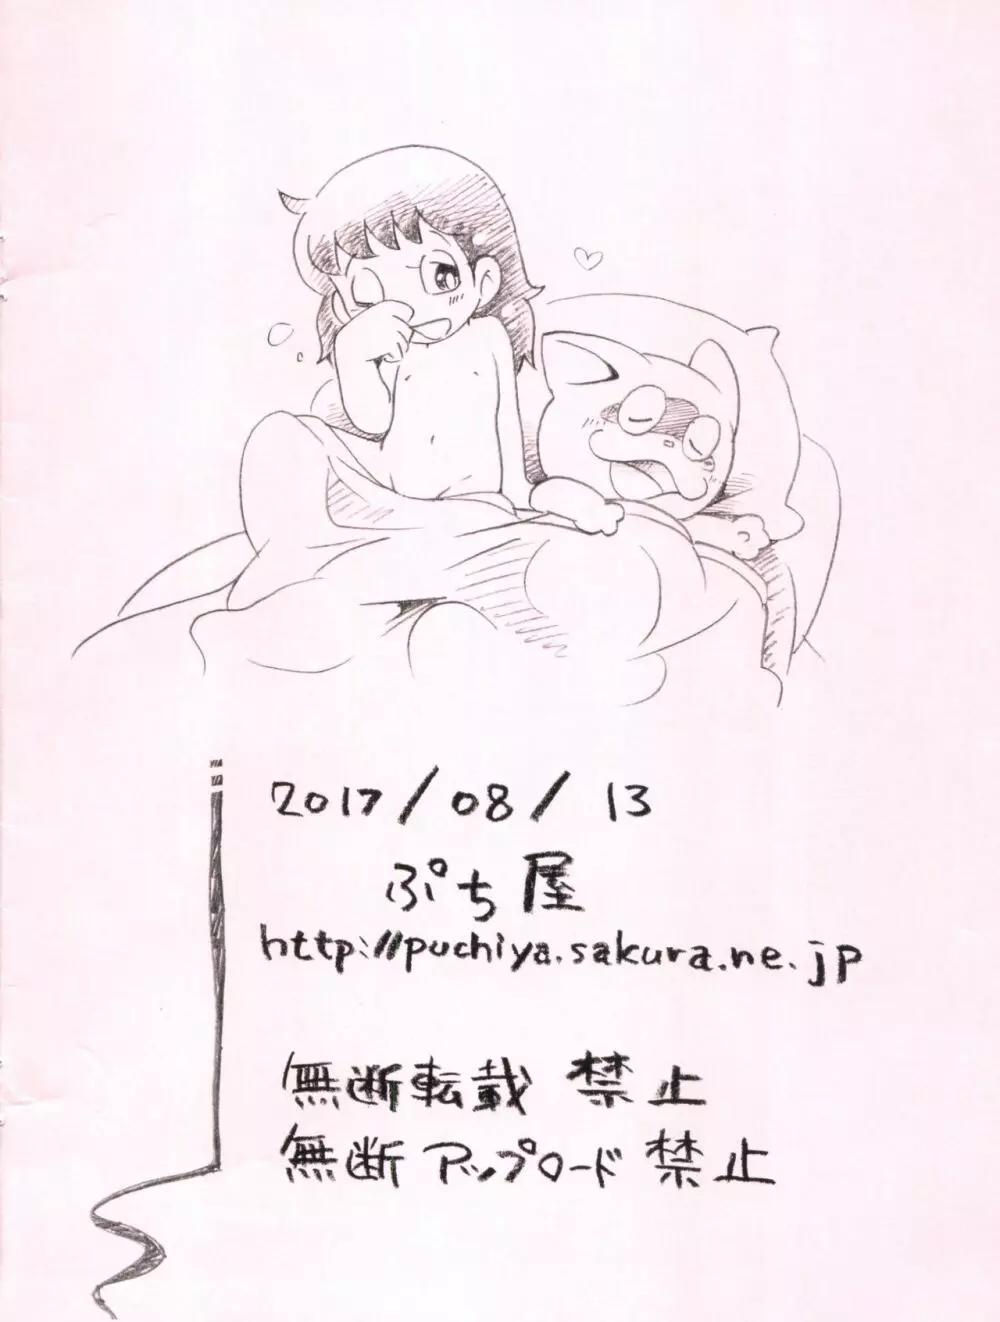 2017/08/13
ぷち屋
http://puchiya.sakura.ne.jp
無断転載 禁止
無断アップロード 禁止